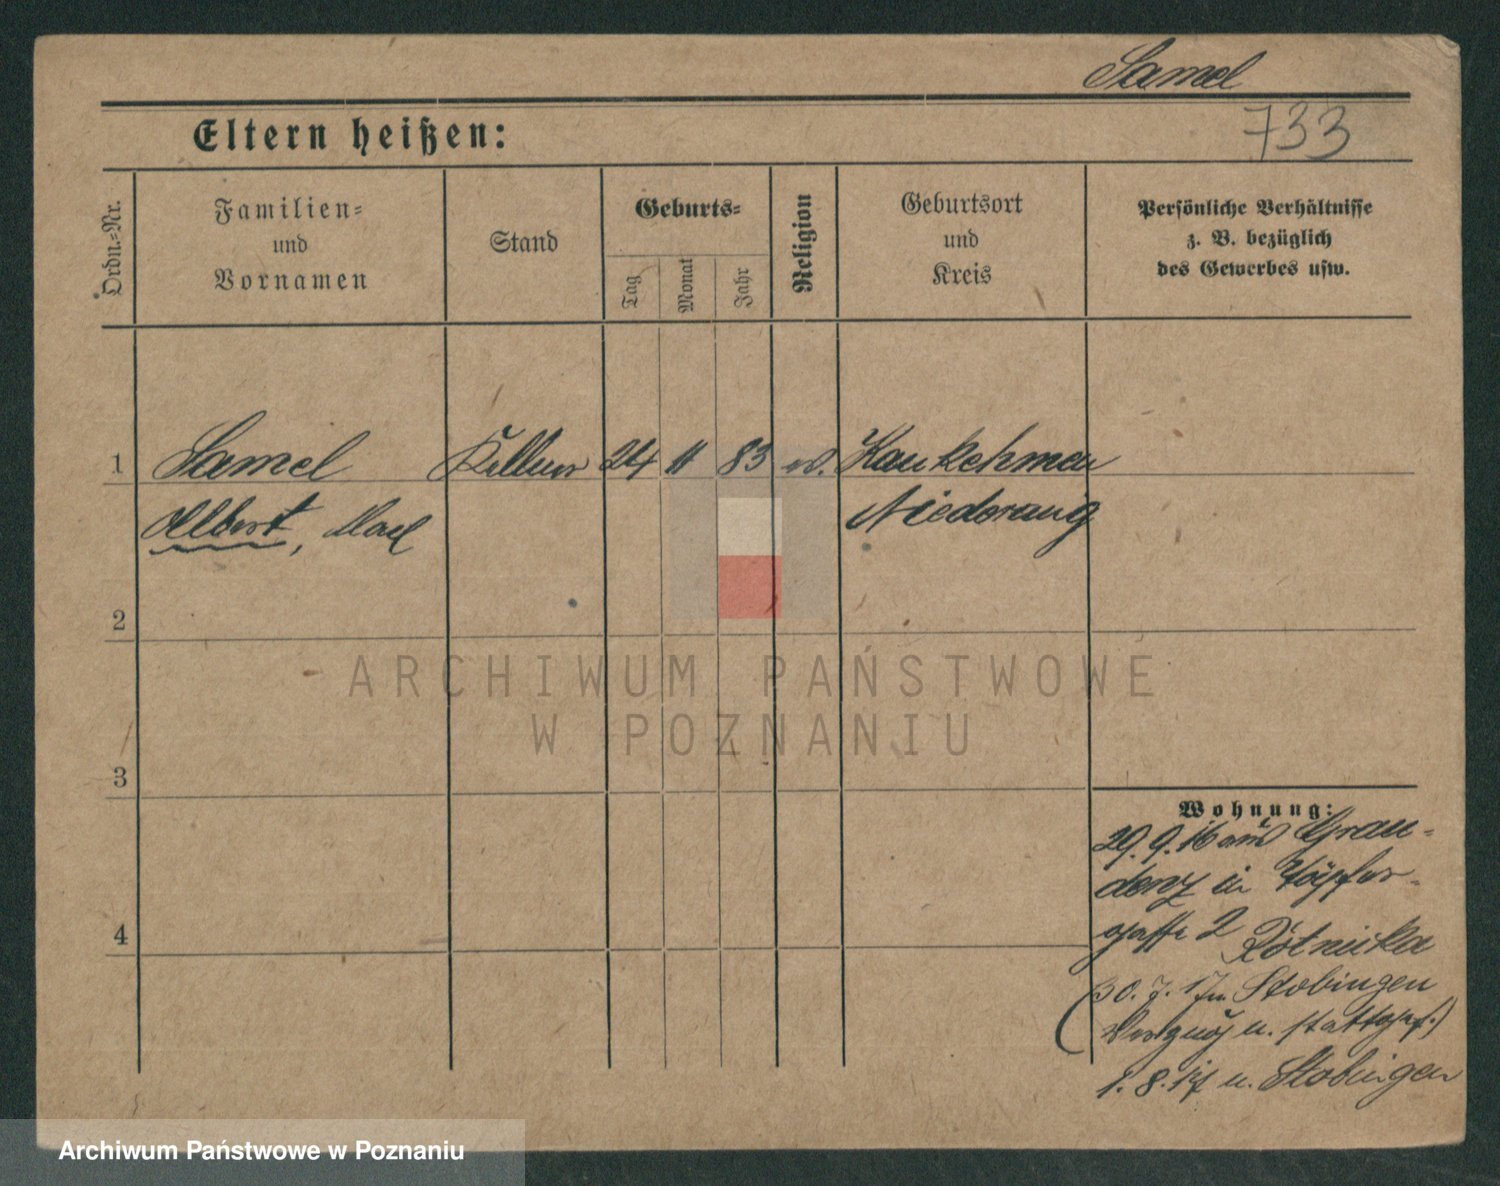 Samel
733
Eltern heißen:
Ordn.=Nr.
Familien=
und
Vornamen
Stand
Geburts=
Tag
Monat
Jahr
Religion
Geburtsort
und
Kreis
Persönliche Verhältnisse
z. B. bezüglich
des Gewerbes usw.
1
Samel
Kellner
24
11
83
ev.
Kaukehmen
Albert,
Niederung
2
ARCHIWUM PAŃSTWOWE
W POZNANIU
3
4
Wohnung:
29.9.16 aus Grau=
denz in Töpfer=
gasse 2
Rotnicka
(30.7.17 n. Stobingen
Verzug n. stattgef.)
1.8.17 n. Stobingen
Archiwum Państwowe w Poznaniu